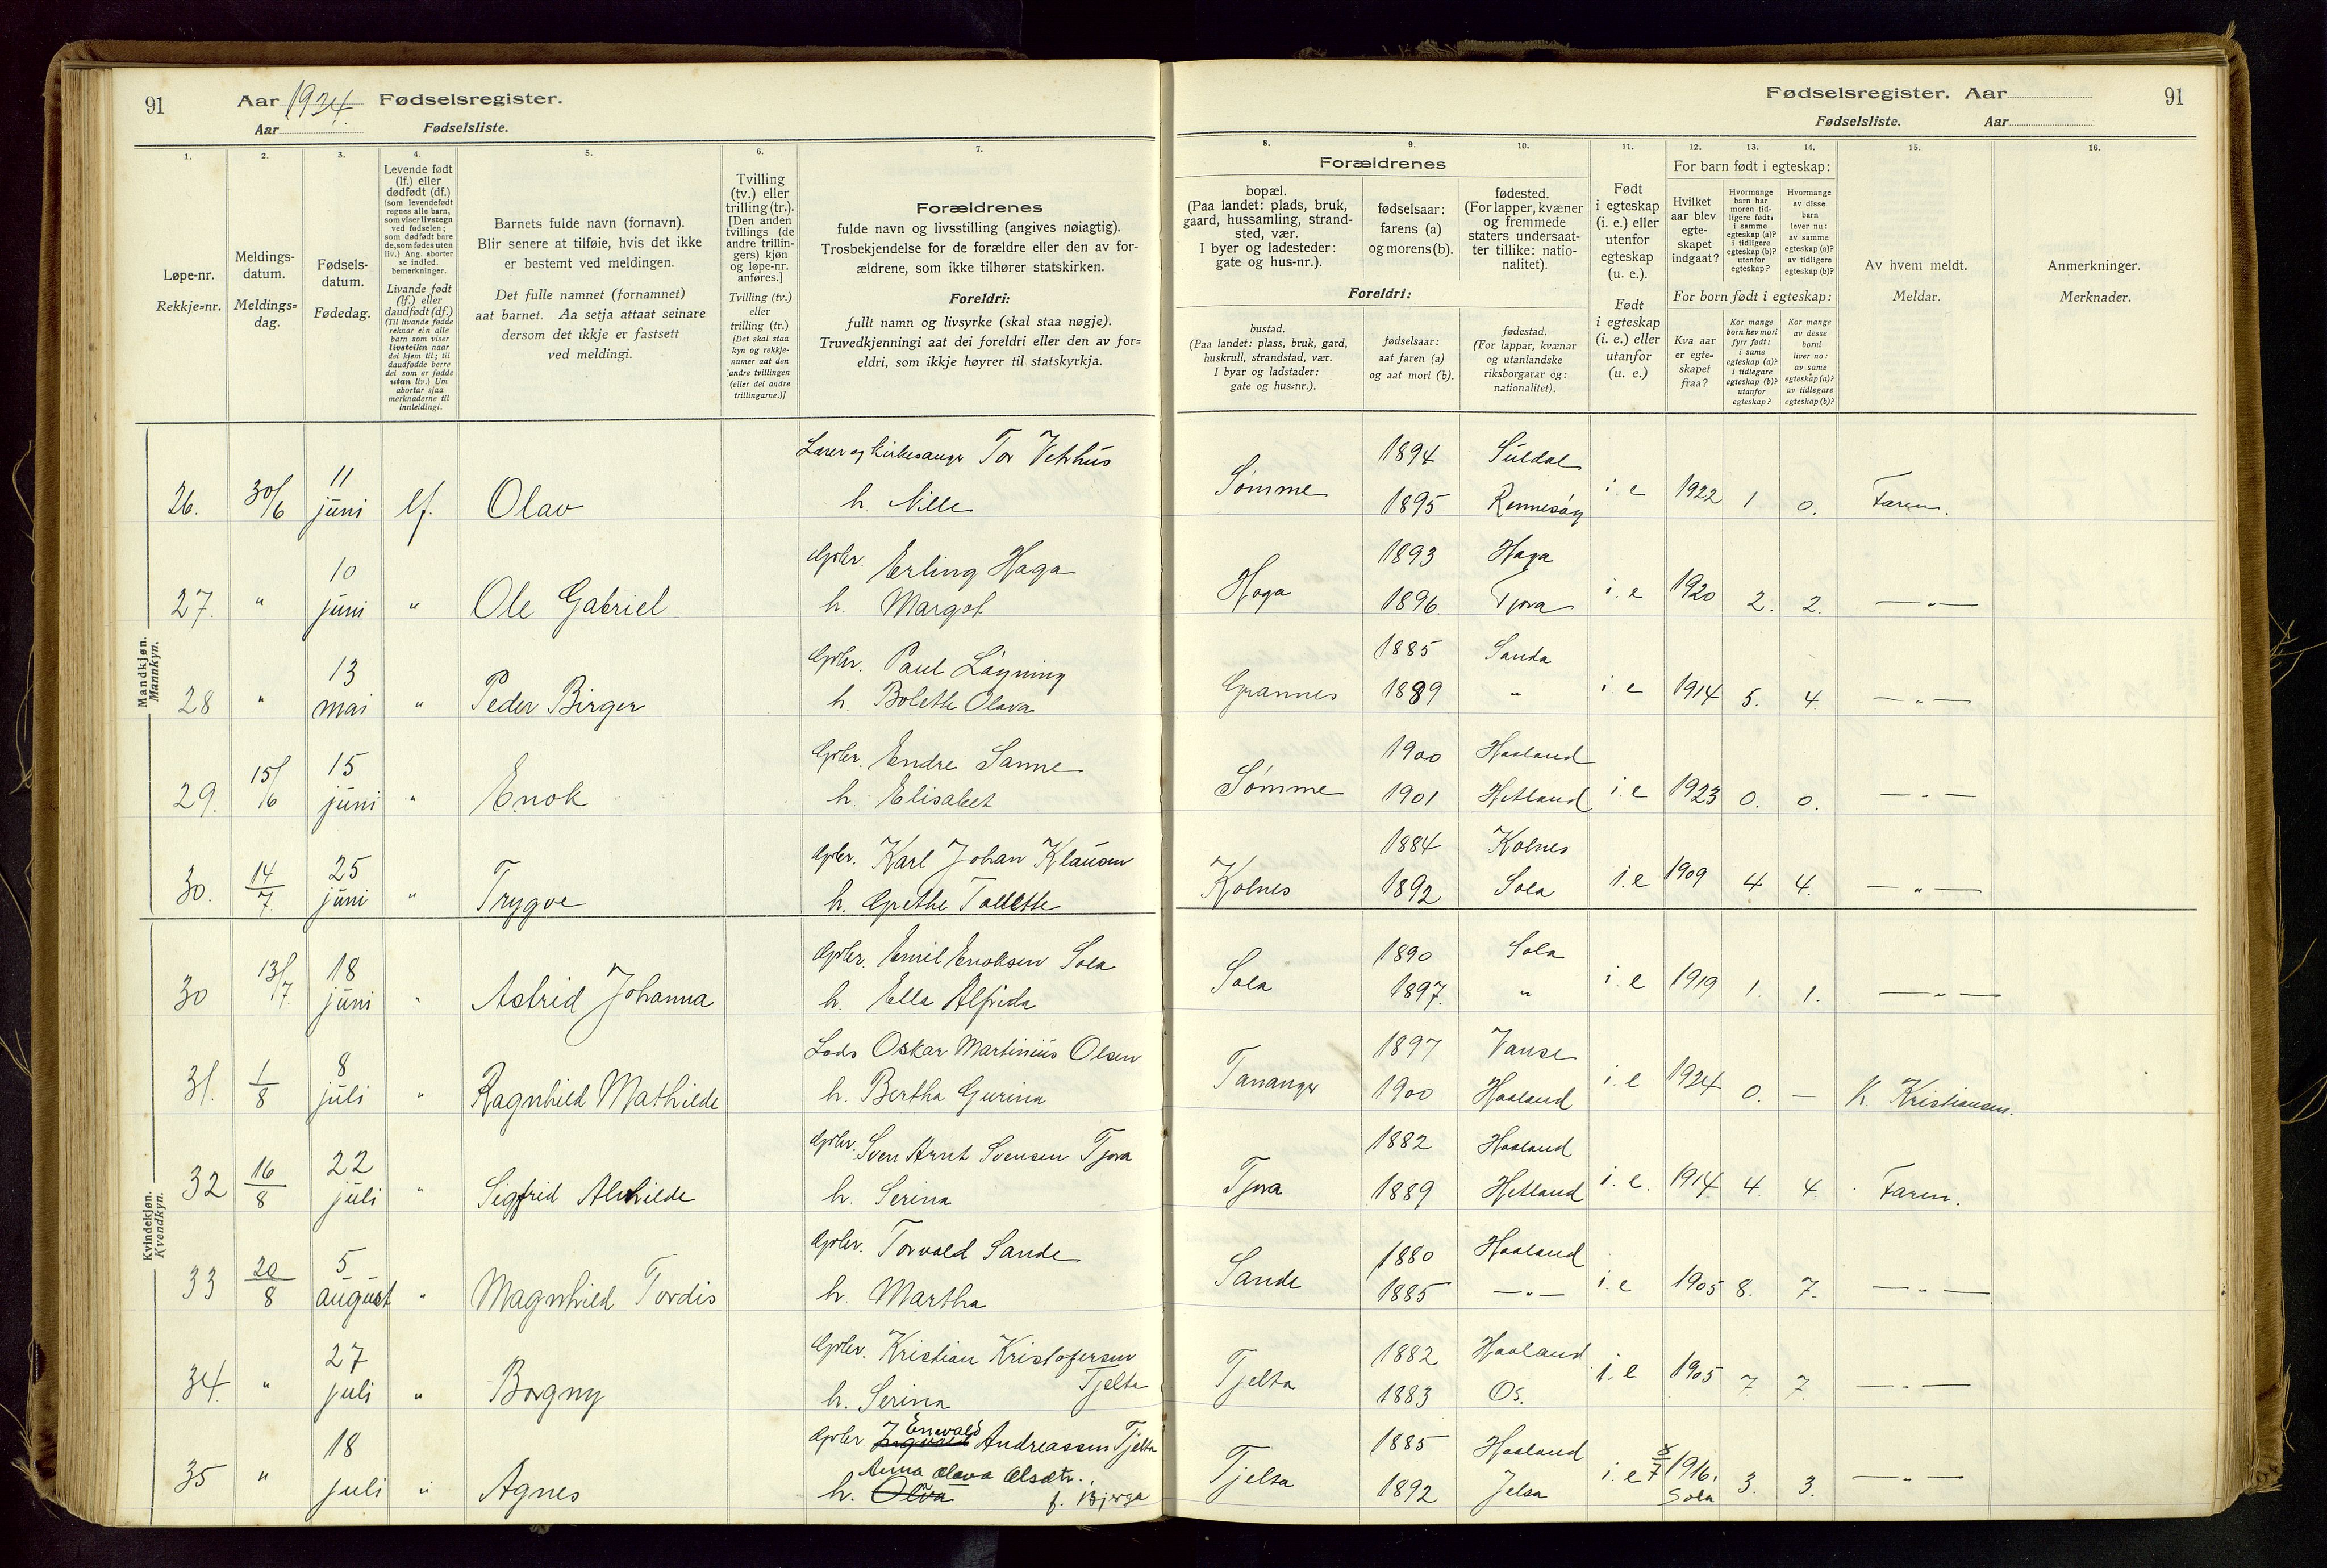 91
Aar 1924. Fødselsregister.
Aar Fødselsliste.
Fødselsregister. Aar
91
Fødselsliste. Aar
1. 2. 3. 4. 5. 6. 7. 8. 9. 10. 11. 12. 13. 14. 15. 16.
Løpe-nr.
Rekkje=nr.
Meldings-
datum.
Meldings=
dag.
Fødsels-
datum.
Fødedag.
Levende født
(lf.) eller
dødfødt (df.)
(som levendefødt
regnes alle barn,
som viser livstegn
ved fødselen;
som dødfødt bare
de, som fødes uten
liv.) Ang. aborter
se indled.
bemerkninger.
Livande født
(lf.) eller
daudfødt (df.)
(Til livande fødde
reknar ein alle
barn som viser
livsteikn naar
dei kjem til; til
daudfødde berre
dei som er fødde
utan liv.) Um
abortar sjaa
merknaderne til
innleidingi.
Barnets fulde navn (fornavn).
Blir senere at tilføie, hvis det ikke
er bestemt ved meldingen.
Det fulle namnet (fornamnet)
aat barnet. Aa setja attaat seinare
dersom det ikkje er fastsett
ved meldingi.
Tvilling
(tv.) eller
trilling (tr.).
[Den anden
tvillings (de
andre trillin-
gers) kjøn
og løpe-nr.
anføres.]
Tvilling (tv.)
eller
trilling (tr.)
[Det skal staa
kyn og rekkje-
numer aat den
andre tvillingen
(eller dei andre
trillingarne.)]
Forældrenes
fulde navn og livsstilling (angives nøiagtig).
Trosbekjendelse for de forældre eller den av for-
ældrene, som ikke tilhører statskirken.
Foreldri:
fullt namn og livsyrke (skal staa nøgje).
Truvedkjenningi aat dei foreldri eller den av for=
eldri, som ikkje høyrer til statskyrkja.
Forældrenes
bopæl.
(Paa landet: plads, bruk,
gaard, hussamling, strand-
sted, vær.
I byer og ladesteder:
gate og hus-nr.).
fødselsaar:
farens (a)
og morens (b).
fødested.
(For lapper, kvæner
og fremmede
staters undersaat-
ter tillike: natio-
nalitet).
Foreldri:
bustad.
(Paa landet: plass, bruk, gard,
huskrull, strandstad, vær.
I byar og ladstader:
gate og hus=nr.).
fødselsaar:
aat faren (a)
og aat mori (b).
fødestad.
(For lappar, kvænar
og utanlandske
riksborgarar og:
nationalitet).
Født
i egteskap
(i. e.) eller
utenfor
egteskap
(u. e.).
Født
i egteskap
(i. e.) eller
utanfor
(u. e.)
For barn født i egteskap:
Hvilket
aar blev
egte-
skapet
indgaat?
Hvormange
barn har
moren tid-
ligere født:
i samme
egteskap (a)?
i tidligere
egteskap (b)?
utenfor
egteskap?
Hvormange
av disse
barn
lever nu:
av samme
egteskap (a)?
av tidligere
egteskap (b)?
For born født i egteskap:
Kva aar
er egte=
skapet
fraa?
Kor mange
born hev mori
fyrr født:
i same
egteskap (a)?
i tidlegare
egteskap (b)?
utanfor
egteskap?
Kor mange
av desse
borni
liver no:
av same
egteskap (a)?
av tidlegare
egteskap (b)?
Av hvem meldt.
Meldar.
Anmerkninger.
Merknader.
Mandkjøn.
Mannkyn.
26. 30/6 11 juni lf. Olav Lærer og Kirkesanger Tor Vetrhus Sømme 1894 Suldal i. e 1922 1 0. Faren.
h. Nille 1895 Rennesøy
27. " 10 juni " Ole Gabriel Gbr. Erling Haga Haga 1893 Haga i. e 1920 2. 2. — " —
h. Margot 1896. Tjora
28 " 13 mai " Peder Birger Gbr. Paul Løyning Grannes 1885 Sanda i. e 1914 5. 4. — " —
h. Bolette Olava 1889 "
29. 15/6 15 juni " Enok Gbr. Endre Sanne Sømme 1900 Haaland i. e 1923 0. 0. — " —
h. Elisabet 1901 Hetland
30. 14/7. 25 juni " Trygve Gbr. Karl Johan Klausen Kolnes 1884 Kolnes i. e 1909 4 4. — " —
h. Grethe Tollette 1892 Sola
Kvindekjøn.
Kvendkyn.
30 13/7. 18 juni " Astrid Johanna Gbr. Emil Enoksen Sola Sola 1890 Sola i. e 1919 1. 1. — " —
h. Ella Alfrida 1897. "
31. 1/8 8 juli " Ragnhild Mathilde Lods Oskar Martinius Olsen Tananger 1897 Vanse i. e 1924 0. — K. Kristiansen.
h. Bertha Gurina 1900 Haaland
32 16/8 22 juli " Sigfrid Alvhilde Gbr. Sven Arnt Svensen Tjora Tjora 1882 Haaland i. e. 1914. 4. 4. Faren.
h. Serina 1889 Hetland
33 20/8 5 august " Magnhild Tordis Gbr. Torvald Sande Sande 1880 Haaland i. e 1905 8. 7. — " —
h. Martha 1885 — " —
34. " 27 juli " Borgny Gbr. Kristian Kristofersen Tjelta Tjelta 1882 Haaland i. e 1905 7. 7. — " —
h. Serina 1883 Os.
35 " 18 juli " Agnes Gbr. Ingvald Enevald Andreassen Tjelta Tjelta 1885 Haaland i. e 8/7 1916. Sola 3. 3. — " —
h. Olava Anna Olava Olsdtr. f. Bjerga 1892 Jelsa